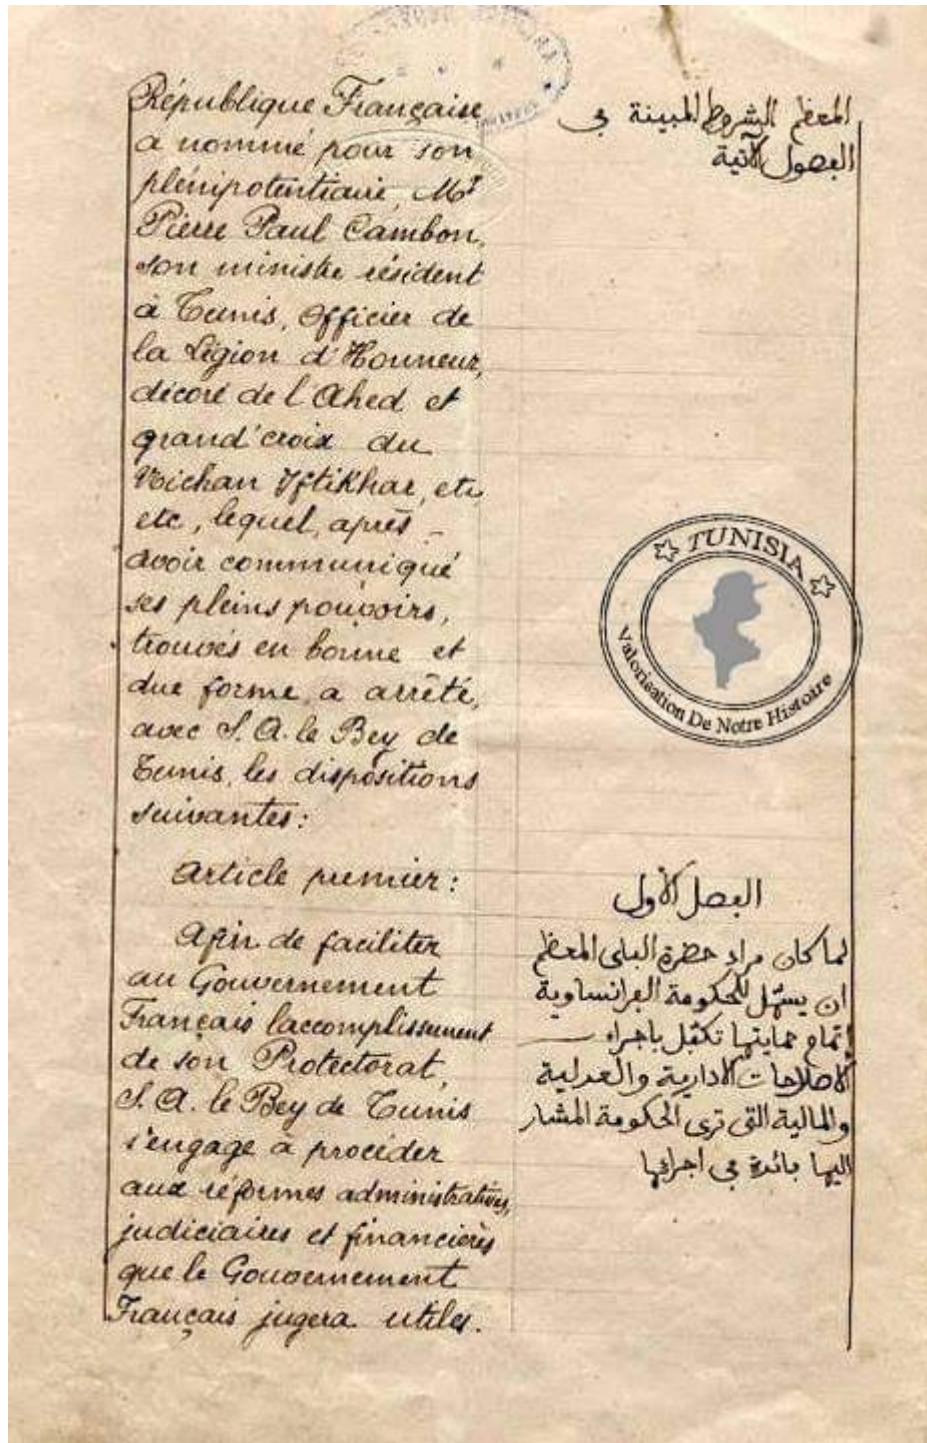 République Française
a nommé pour son
plénipotentiaire, Mr
Pierre Paul Cambon,
son ministre résident
à Tunis, Officier de
la Légion d'Honneur,
décoré de l'Ahed et
grand'croix du
Nichan Iftikhar, etc,
etc, lequel, après
avoir communiqué
ses pleins pouvoirs,
trouvés en bonne et
due forme, a arrêté,
avec S. A. le Bey de
Tunis, les dispositions
suivantes:
Article premier:
Afin de faciliter
au Gouvernement
Français l'accomplissement
de son Protectorat,
S. A. le Bey de Tunis
s'engage à procéder
aux réformes administratives,
judiciaires et financières
que le Gouvernement
Français jugera utiles.
المعظم الشروط المبينة ڢي
الڢصول الآتية
TUNISIA
Valorisation De Notre Histoire
الڢصل الأول
لما كان مراد حضرة الباي المعظم
ان يسهّل للحكومة الڢرانساوية
إتمام حمايتها تكڢل باجراء
الاصلاحات الادارية والعدلية
والمالية التي ترى الحكومة المشار
اليها ڢائدة ڢي اجرائها